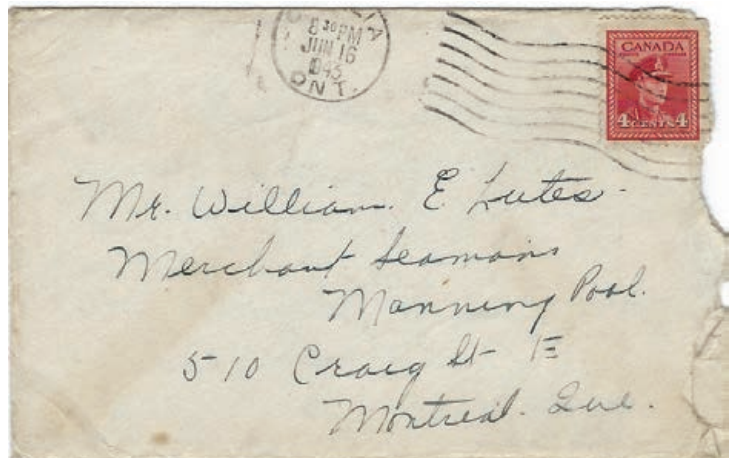 8 30 PM
JUN 16
1943
ONT.
CANADA
4 CENTS 4
Mr. William. E. Lutes.
Merchant Seamans
Manning Pool.
510 Craig St E
Montreal. Que.